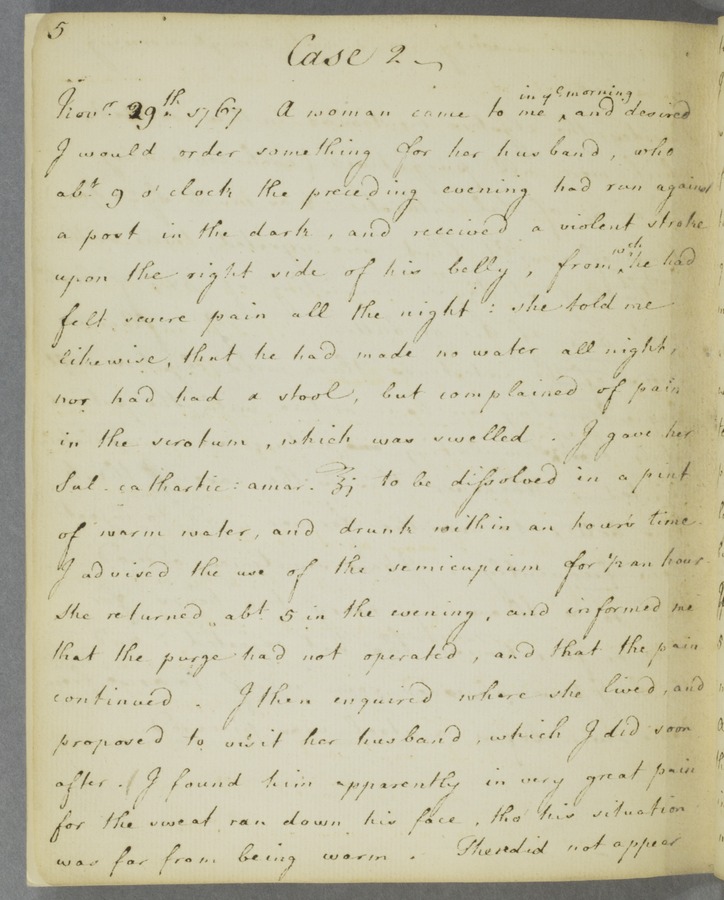 5
Case 2
Novr. 29th. 1767 A woman came to me in ye morning and desired
I would order something for her husband, who
abt. 9 o'clock the preceding evening had run against
a post in the dark, and received a violent stroke
upon the right side of his belly, from wch he had
felt severe pain all the night: she told me
likewise, that he had made no water all night,
nor had had a stool, but complained of pain
in the scrotum, which was swelled. I gave her
Sal. cathartic: amar. ℥j to be dissolved in a pint
of warm water, and drunk within an hour's time.
I advised the use of the semicupium for 1/2 an hour
She returned abt. 5 in the evening, and informed me
that the purge had not operated, and that the pain
continued. I then enquired where she lived, and
proposed to visit her husband, which I did soon
after. I found him apparently in very great pain
for the sweat ran down his face, tho' his situation
was far from being warm. There did not appear